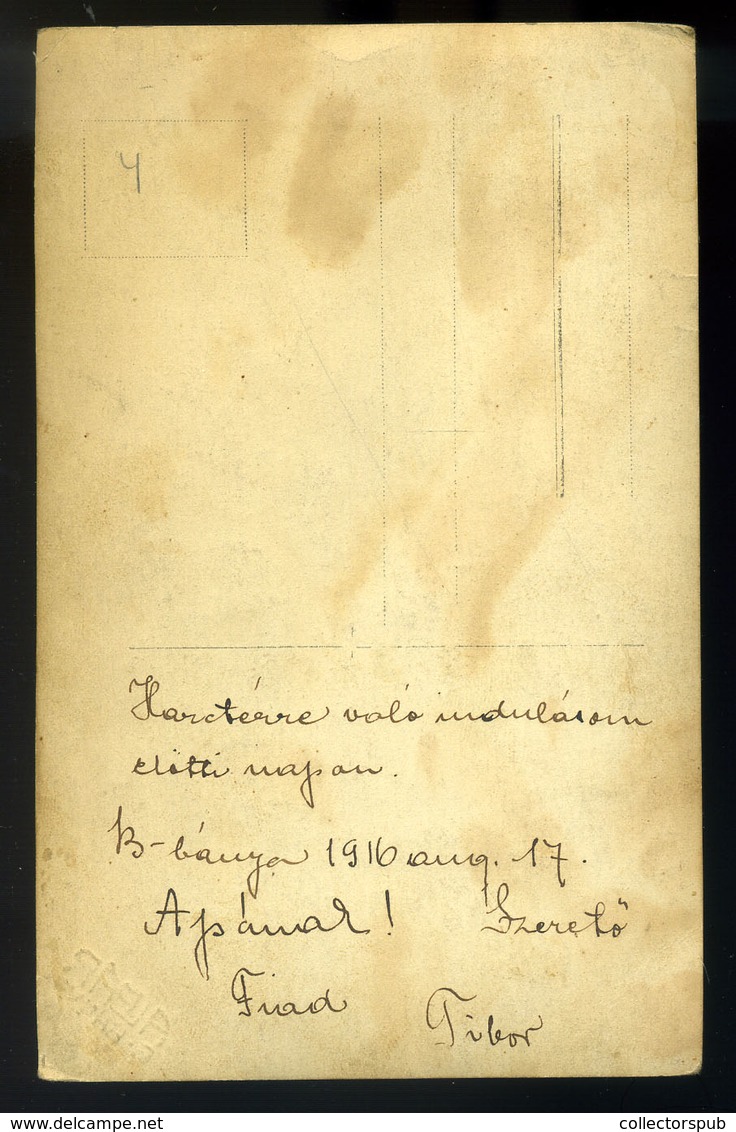 4
Harctérre való indulásom
előtti napon.
B-bánya 1916 aug. 17.
Apámak! Szerető
Fiad
Tibor
www.delcampe.net
collectorspub